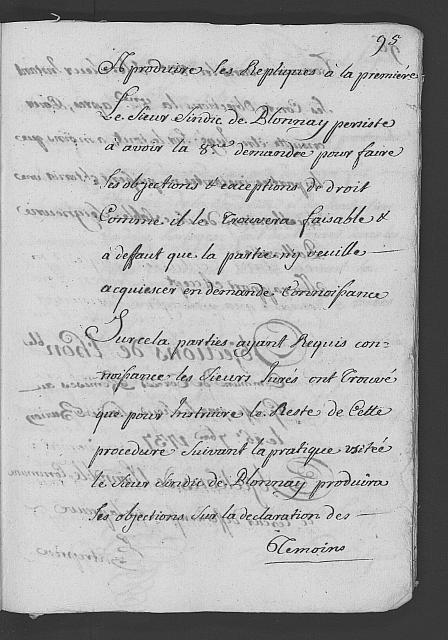 95
A produire les Repliques à la premiére
Le Sieur Sindic de Blonnay persiste
à avoir la 8ne demandée pour faire
ses objections & exceptions de droit
Comme il le Trouvera faisable &
à deffaut que la partie n'y veuille
acquiescer en demande Connoissance
Sur cela parties ayant Requis con=
noissance les Sieurs Jurés ont Trouvé
que pour Instruire le Reste de Cette
procedure suivant la pratique usitée
le Sieur Sindic de Blonnay produira
ses objections sur la declaration des
Temoins